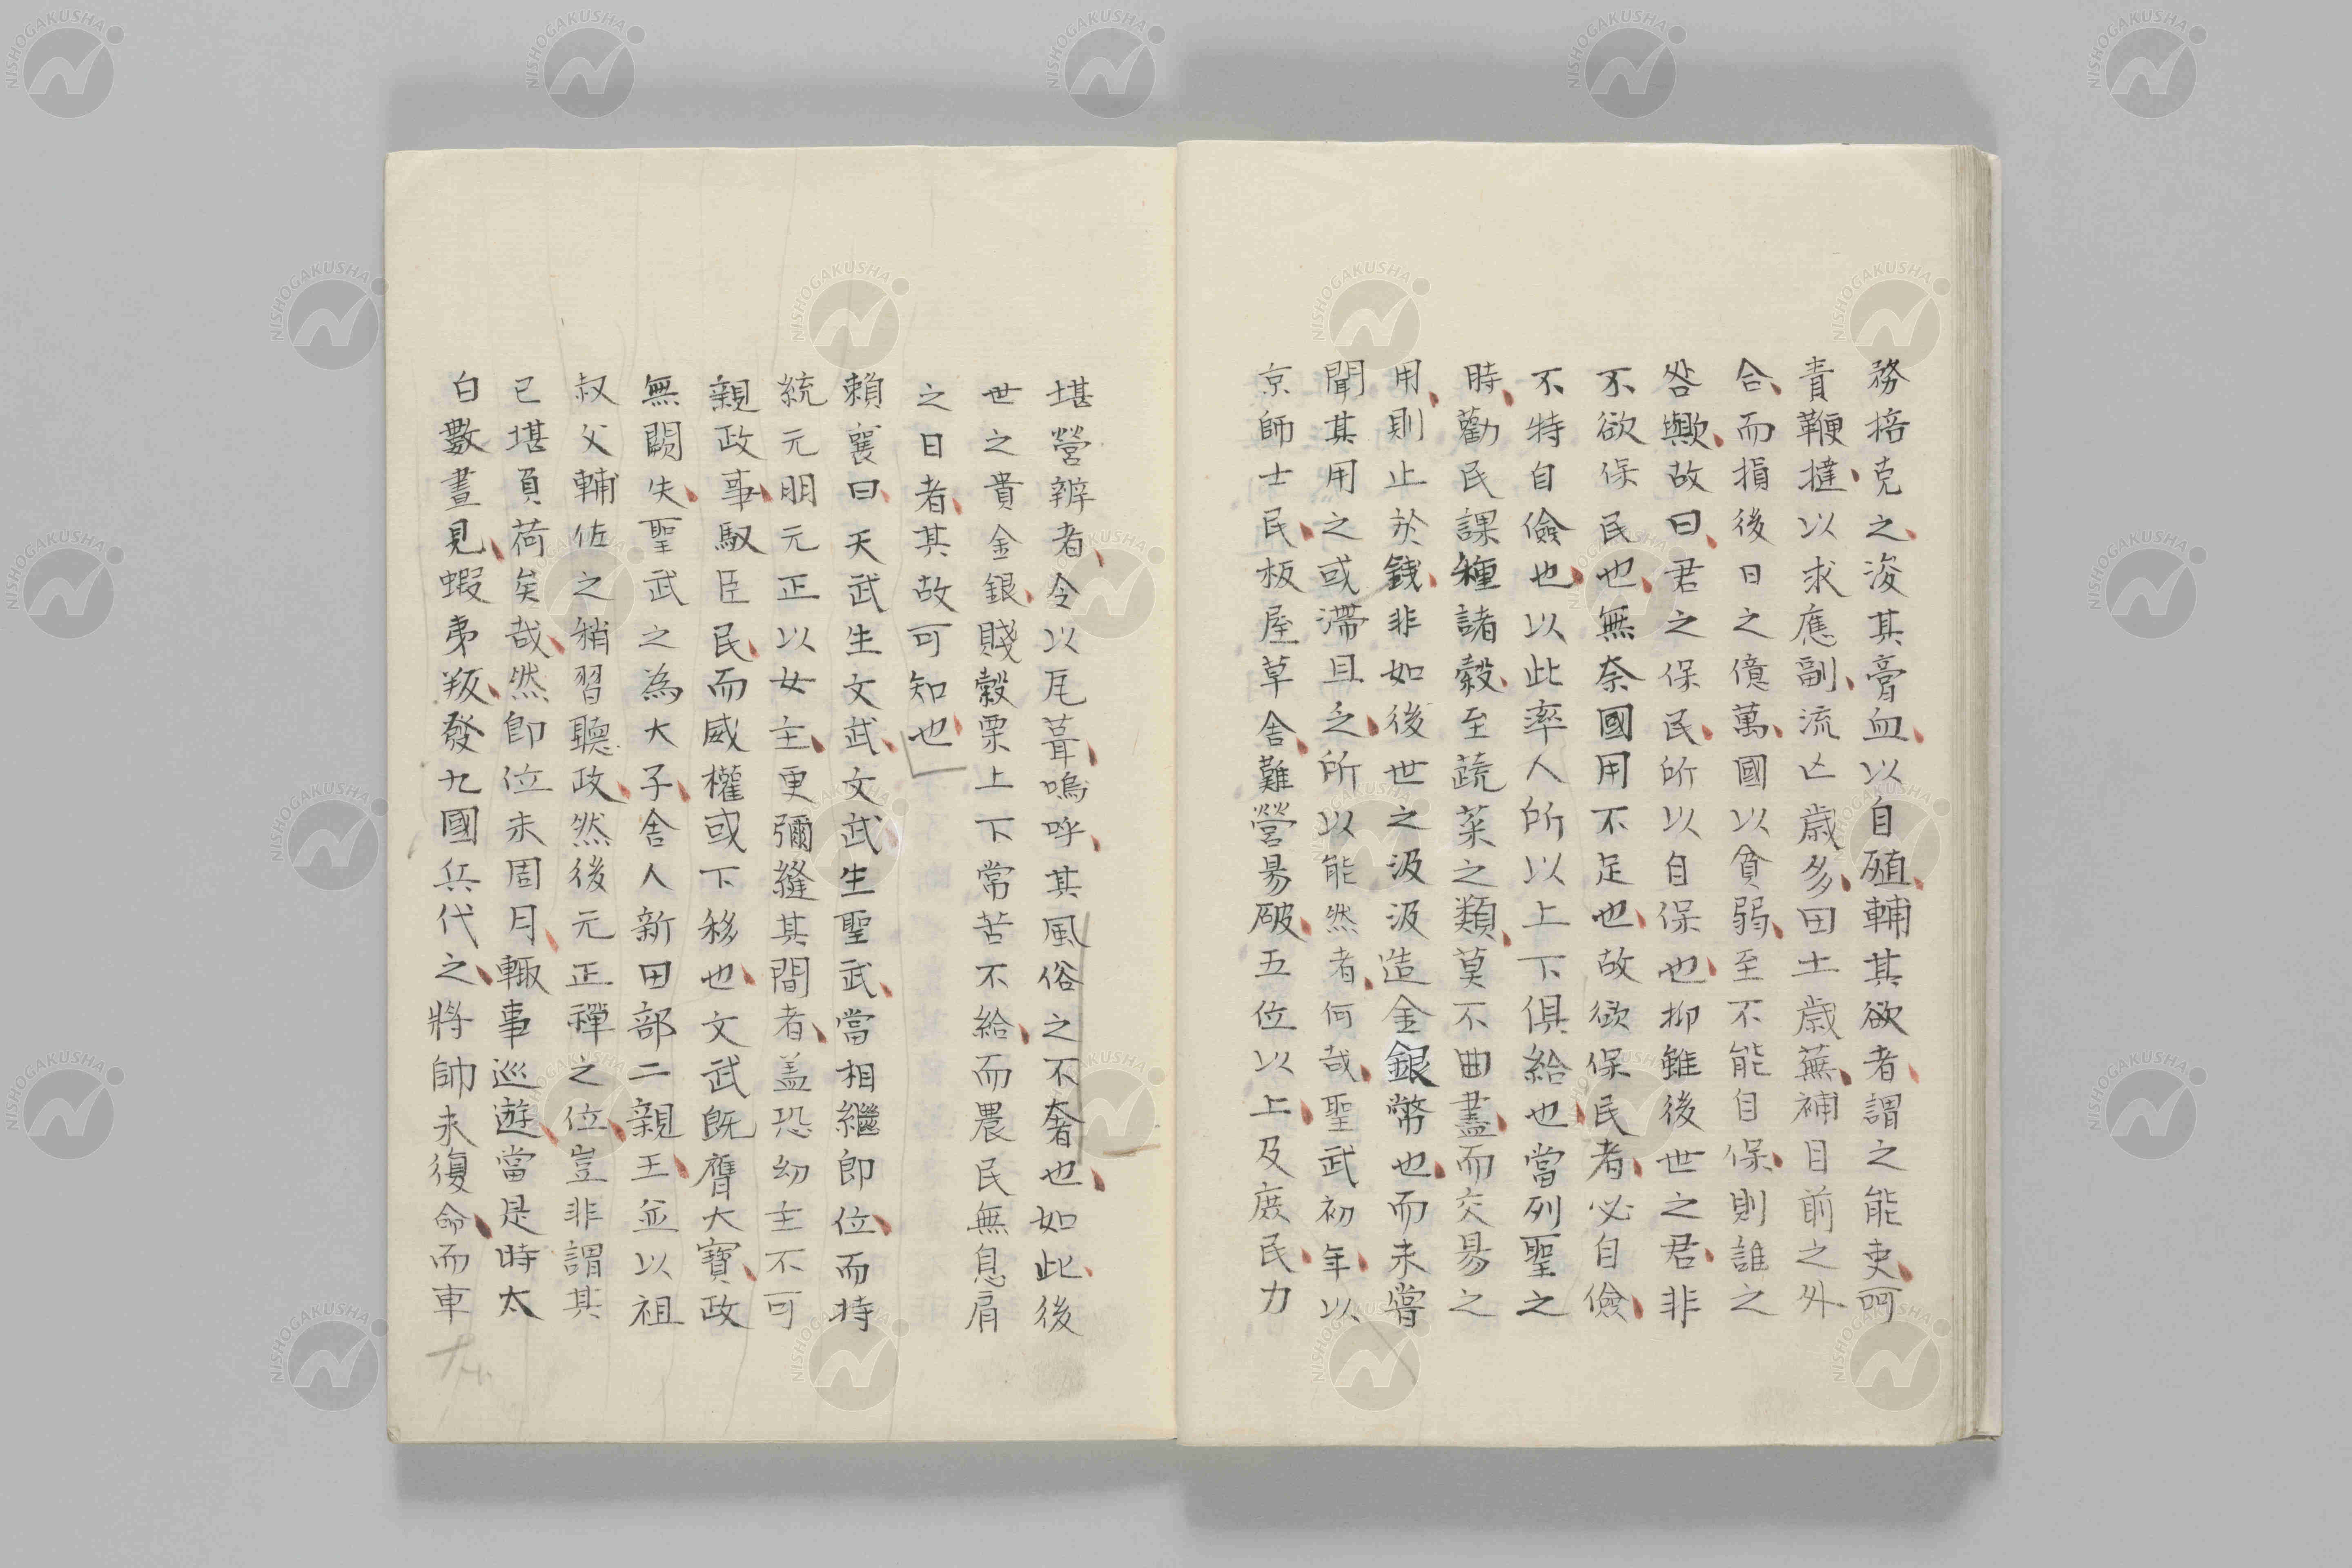 務掊克之浚其膏血以自殖輔其欲者謂之能吏呵
責鞭撻以求應副流亡歳多田土歳蕪補目前之外
合而損後日之億萬國以貧弱至不能自保則誰之
咎歟故曰君之保民所以自保也抑雖後世之君非
不欲保民也無奈國用不足也故欲保民者必自儉
不特自儉也以此率人所以上下俱給也當列聖之
時勸民課種諸穀至蔬菜之類莫不曲盡而交易之
用則止於錢非如後世之汲汲造金銀幣也而未嘗
聞其用之或滯且乏所以能然者何哉聖武初年以
京師士民板屋草舍難營易破五位以上及庶民力
堪營辨者令以瓦葺嗚呼其風俗之不奢也如此後
世之貴金銀賤穀栗上下常苦不給而農民無息肩
之日者其故可知也
賴襄曰天武生文武文武生聖武當相繼即位而持
統元明元正以女主更彌縫其間者盖恐幼主不可
親政事馭臣民而威權或下移也文武既膺大寶政
無闕失聖武之為太子舍人新田部二親王並以祖
叔父輔佐之稍習聽政然後元正禪之位豈非謂其
已堪負荷矣哉然即位未周月輙事巡遊當是時太
白數晝見蝦夷叛發九國兵代之將帥未復命而車
NISHOGAKUSHA